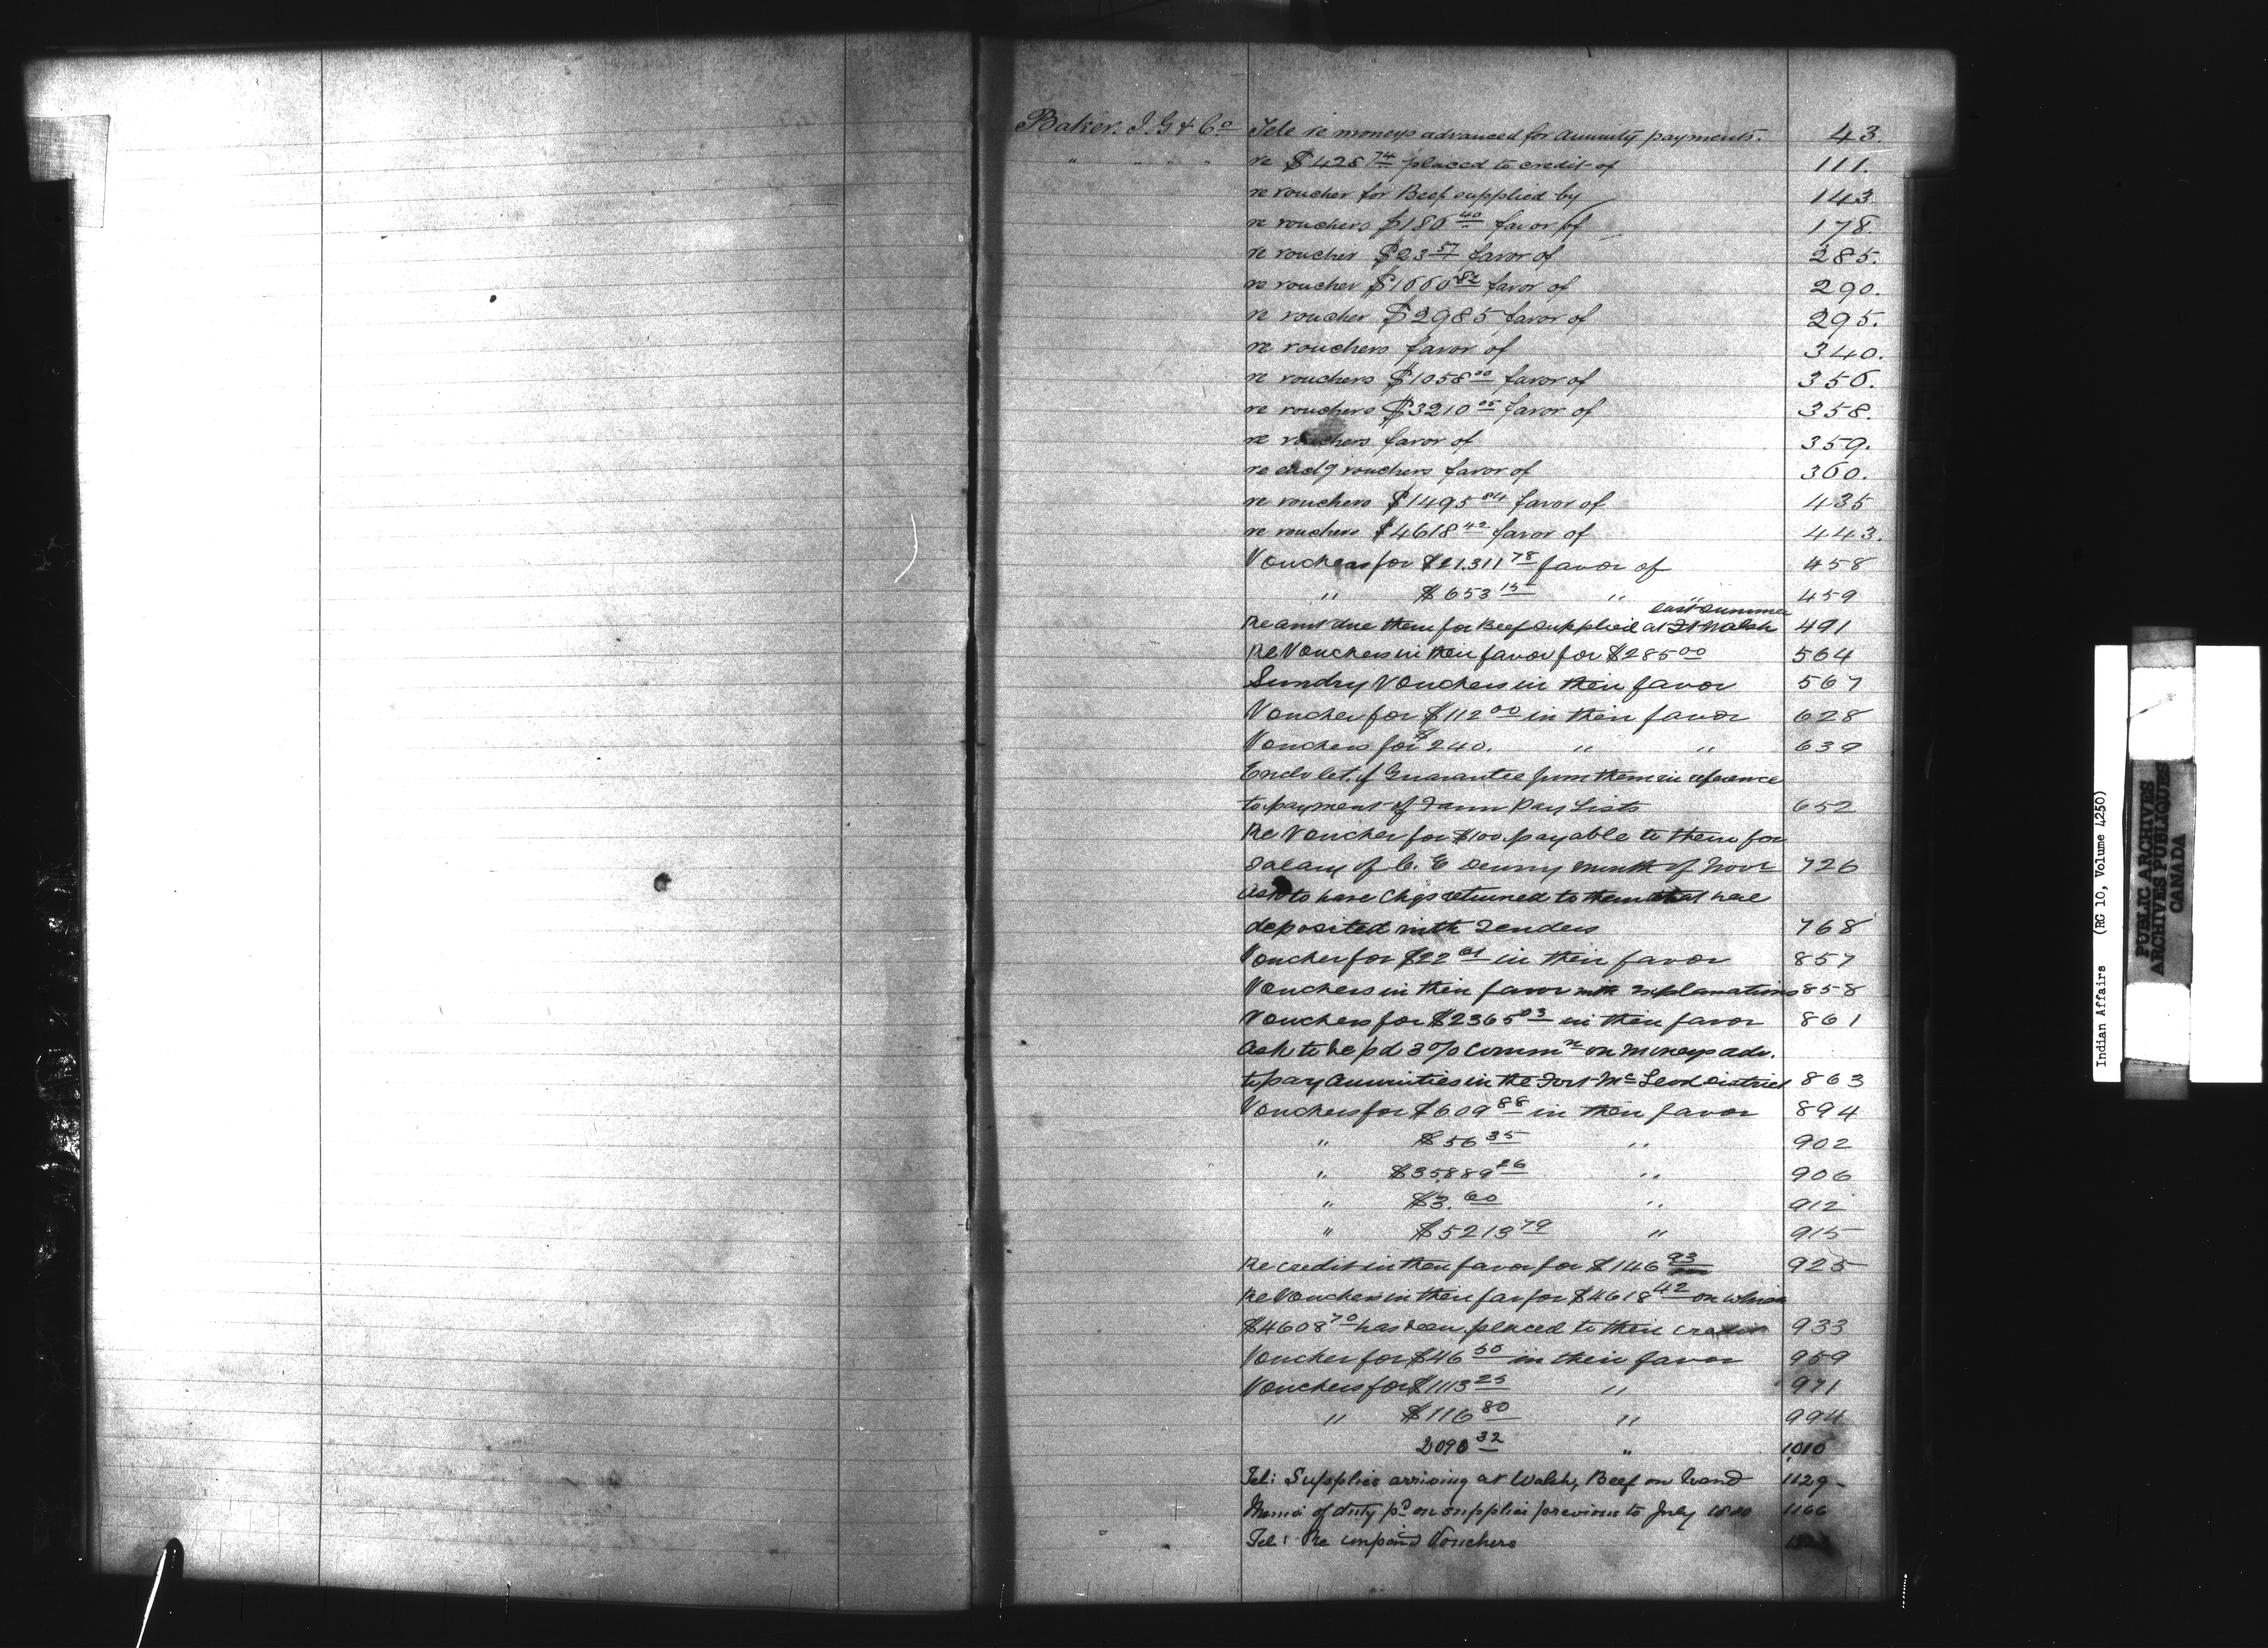 Baker. I. G & Co Tele re moneys advanced for Annuity payments. 43.
" " " " re $428 74 placed to credit of 111.
re voucher for Beef supplied by 143
re vouchers $186 40 favor of 178.
re voucher $23 57 favor of 285.
re voucher $1666 82 favor of 290.
re voucher $2985 favor of 295.
re vouchers favor of 340.
re vouchers $1058 00 favor of 356.
re vouchers $3210 05 favor of 358.
re vouchers favor of 359.
re encl'g vouchers favor of 360.
re vouchers $1495 84 favor of 435
re vouchers $4618 42 favor of 443.
Vouchers for $21.311 78 favor of 458
" $653 15 " " 459
last summer
Re amt due them for Beef supplied at Ft Walsh 491
Re Vouchers in their favor for $285 00 564
Sundry Vouchers in their favor 567
Voucher for $112 00 in their favor 628
Vouchers for $240. " " 639
Enclo let. of Guarantee from them in reference
to payment of Farm Pay Lists 652
Re Voucher for $100. payable to them for
Salary of C. E Denny month of Novr 726
Ask to have Chqs returned to them that were
deposited with Tenders 768
Voucher for $22 61 in their favor 857
Vouchers in their favor with explanations 858
Vouchers for $2365 03 in their favor 861
Ask to be pd 3% Commn on moneys adv.
to pay Annuities in the Fort McLeod District 863
Vouchers for $609 88 in their favor 894
" $56 35 " 902
" $35,889 26 " 906
" $3. 60 " 912
" $5213 79 " 915
Re credit in their favor for $146 93 925
Re Vouchers in their fav for $4618 42 on which
$4608 70 has been placed to their credit 933
Voucher for $46 50 in their favor 959
Vouchers for $1113 25 " 971
" $116 80 " 994
2090 32 " 1010
Tel: Supplies arriving at Walsh, Beef on hand 1129
Memo: of duty pd on supplies previous to July 1880 1166
Tel: Re unpaid Vouchers
Indian Affairs (RG 10, Volume 4250)
PUBLIC ARCHIVES
ARCHIVES PUBLIQUES
CANADA